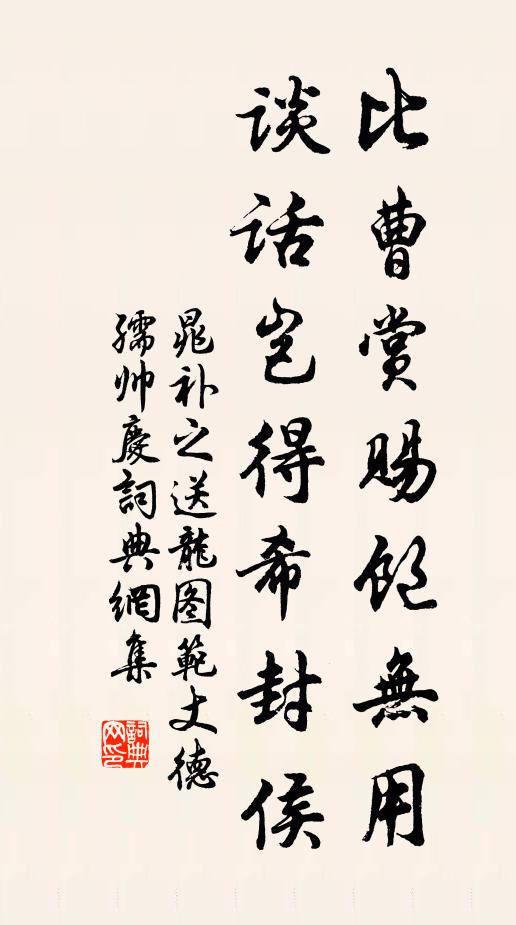 比曹賞賜飽無用
談話岂得希封侯
晁补之送龍图範丈德
孺帅慶詞典網集
詞典
网印